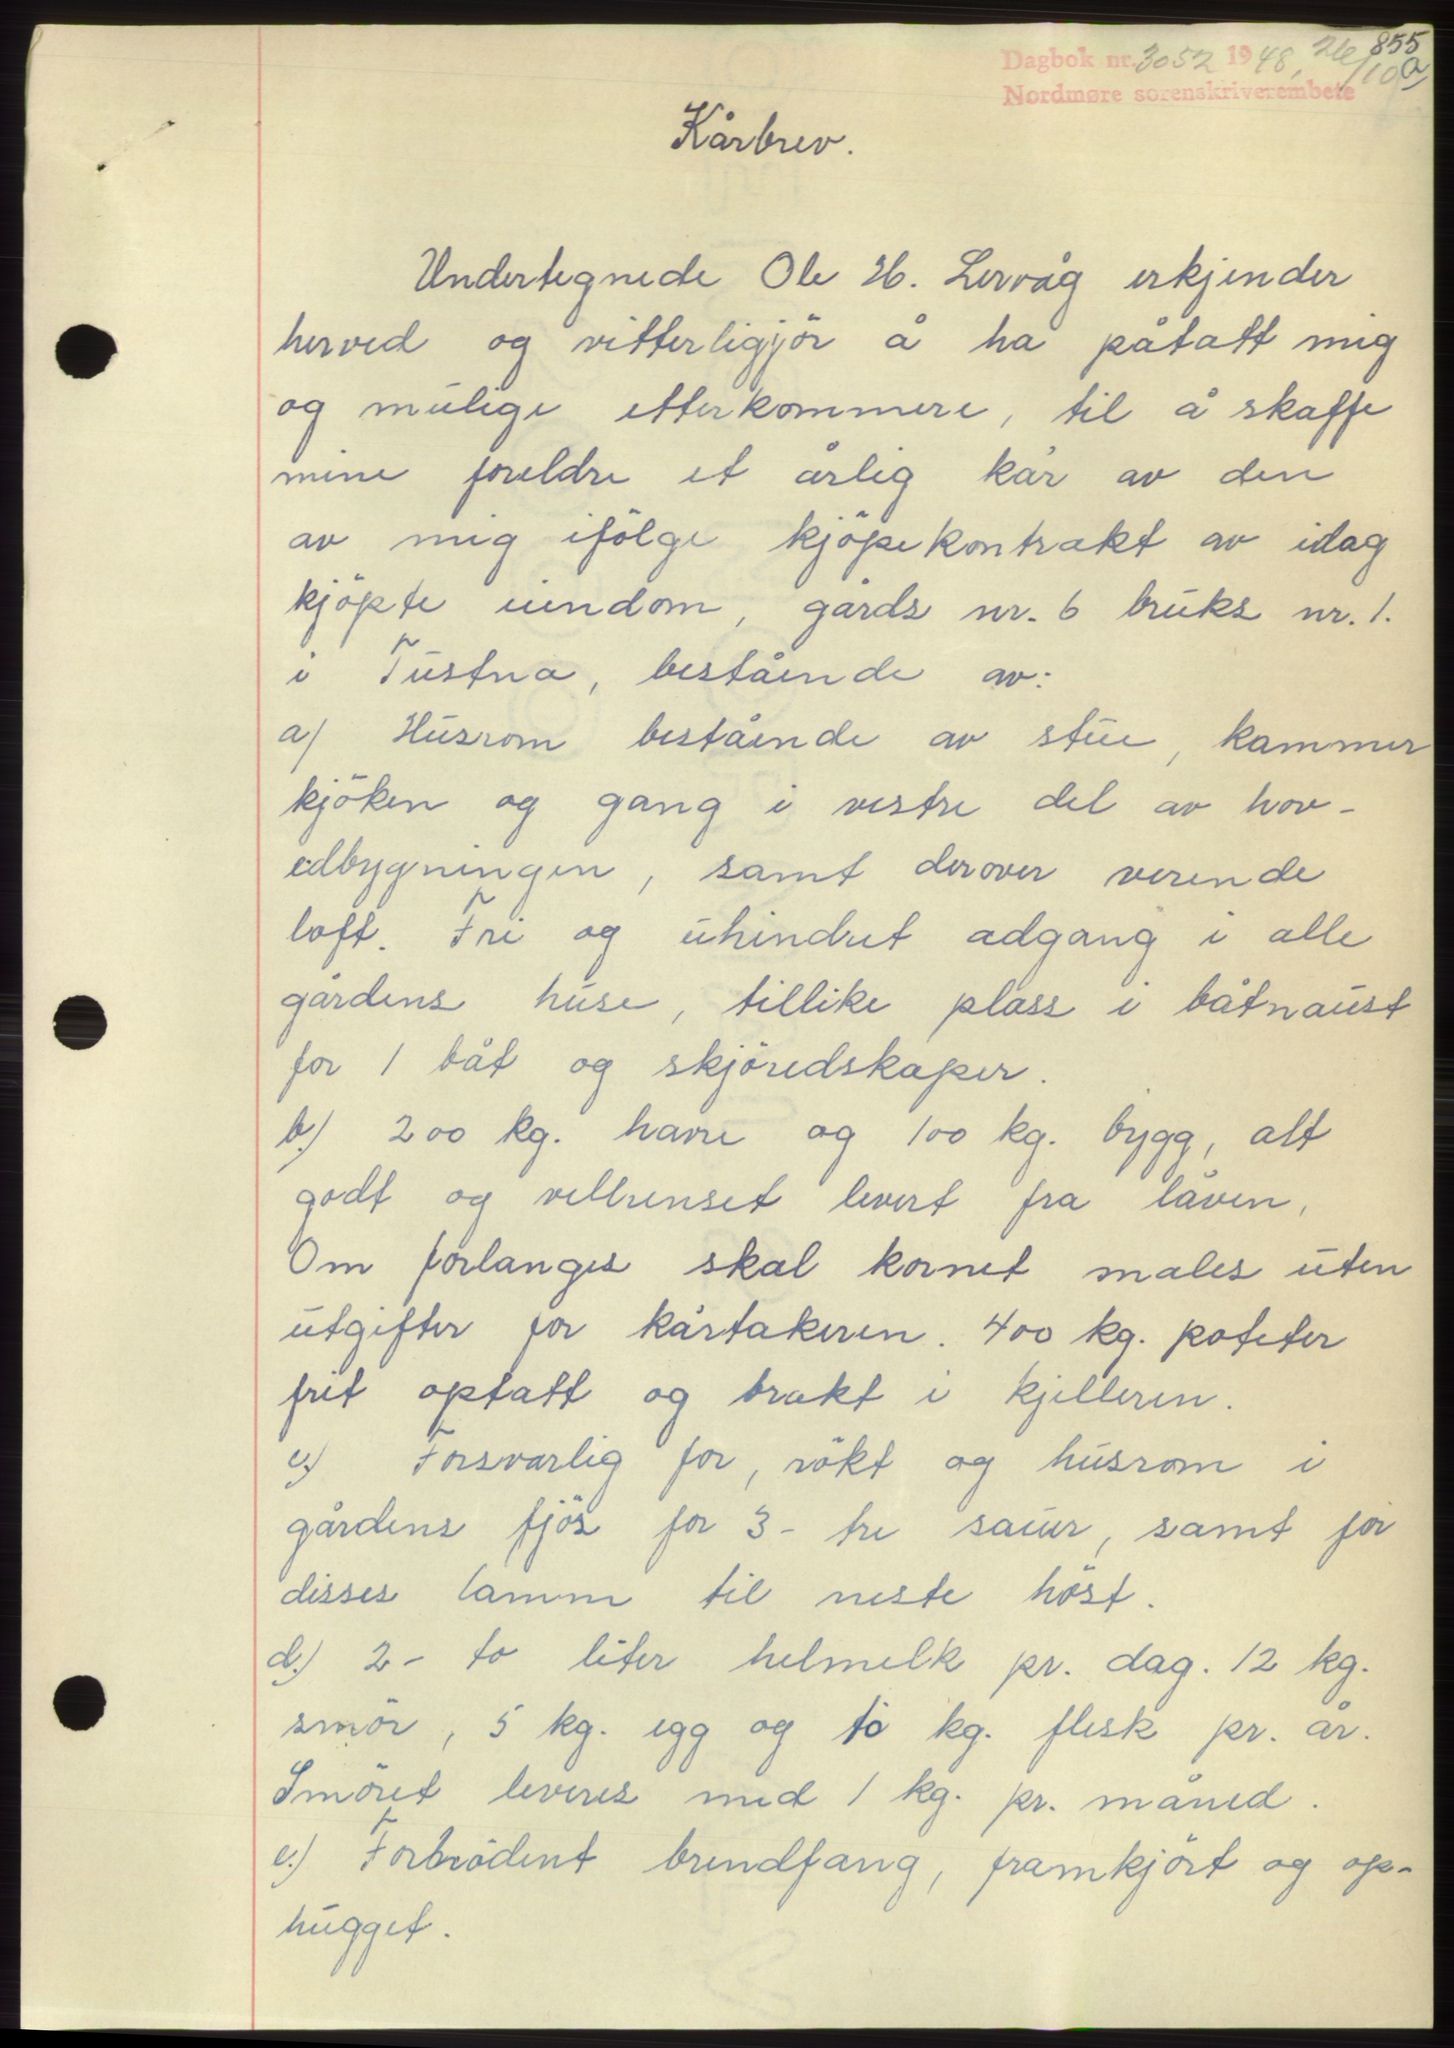 855
a
Dagbok nr. 3052 1948, 26/10
Nordmøre sorenskriverembete
Kårbrev.
Undertegnede Ole H. Lervåg erkjender
herved og vitterligjör å ha påtatt mig
og mulige etterkommere, til å skaffe
mine foreldre et årlig kår av den
av mig ifölge kjöpekontrakt av idag
kjöpte eiendom, gårds nr. 6 bruks nr. 1.
i Tustna, bestående av:
a) Husrom bestående av stue, kammer
kjöken og gang i vestre del av hov-
edbygningen, samt derover verende
loft. Fri og uhindret adgang i alle
gårdens huse, tillike plass i båtnaust
for 1 båt og skjöredskaper.
b.) 200 kg. havre og 100 kg. bygg, alt
godt og velrenset levert fra låven,
Om forlanges skal kornet males uten
utgifter for kårtakeren. 400 kg. poteter
frit optatt og brakt i kjelleren.
c.) Forsvarlig for, rökt og husrom i
gårdens fjös for 3- tre sauer, samt for
disses lamm til neste höst.
d.) 2- to liter helmelk pr. dag. 12 kg.
smör, 5 kg. egg og 10 kg. flesk pr. år.
Smöret leveres med 1 kg. pr. måned.
e.) Forbrödent brendfang, framkjört og op-
hugget.